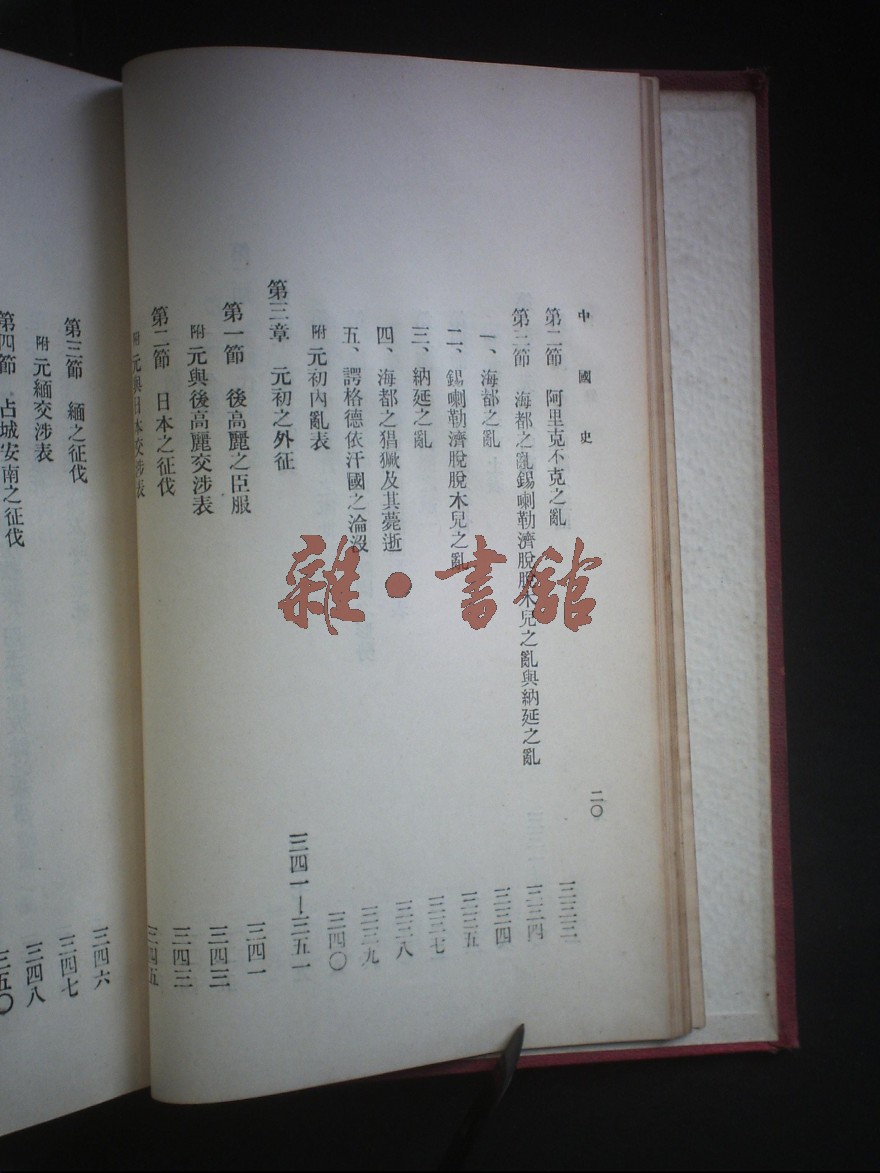 中國史 二〇
第二節 阿里克不克之亂 三三三
第三節 海都之亂錫喇勒濟脫脫木兒之亂與納延之亂 三三四
一、海都之亂 三三四
二、錫喇勒濟脫脫木兒之亂 三三五
三、納延之亂 三三七
四、海都之猖獗及其薨逝 三三八
五、諤格德依汗國之淪沒 三三九
附 元初內亂表 三四〇
第三章 元初之外征 三四一—三五一
第一節 後高麗之臣服 三四一
附 元與後高麗交涉表 三四三
第二節 日本之征伐 三四三
附 元與日本交涉表 三四五
第三節 緬之征伐 三四六
附 元緬交涉表 三四七
第四節 占城安南之征伐 三四八
三五〇
雜·書館